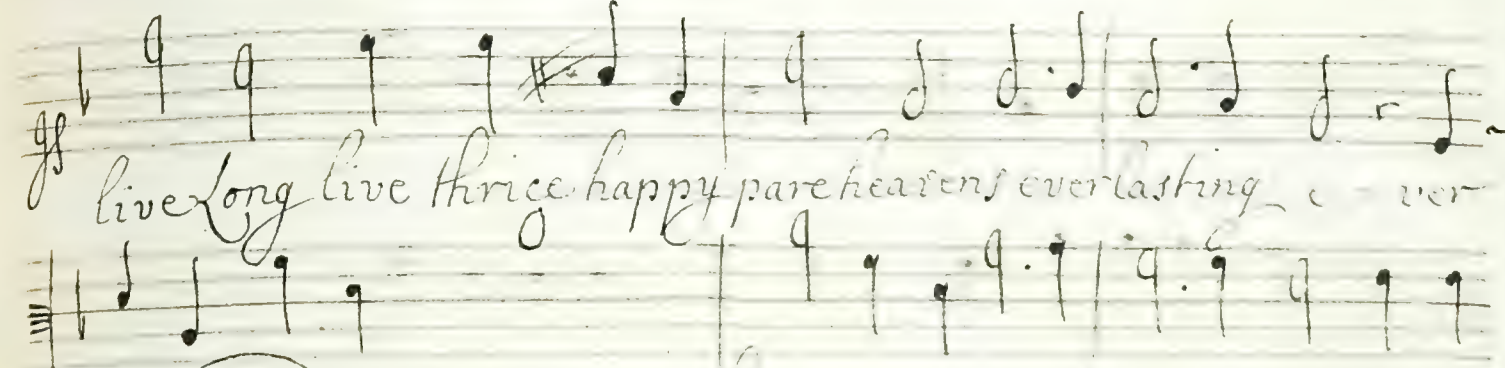 live Long live thrice happy pare heavens everlasting e - ver